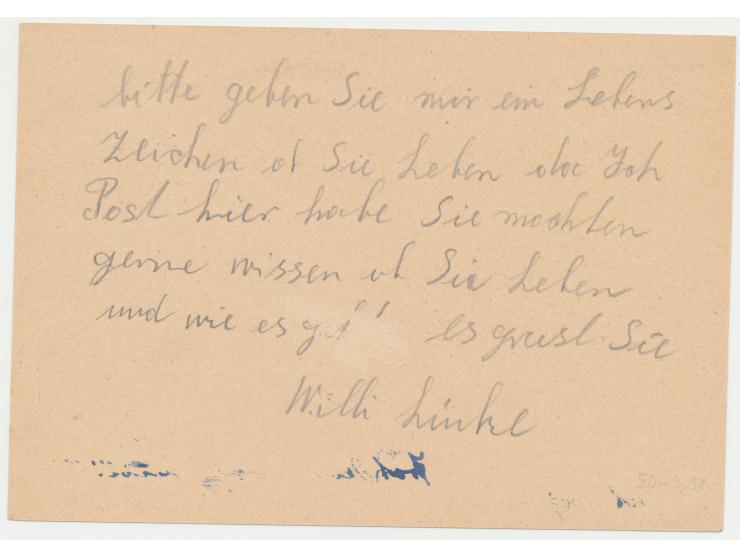 bitte geben Sie mir ein Lebens
Zeichen ob Sie Leben da Ich
Post hier habe Sie mochten
gerne wissen ob Sie Leben
und wie es es grust Sie
Willi Linke